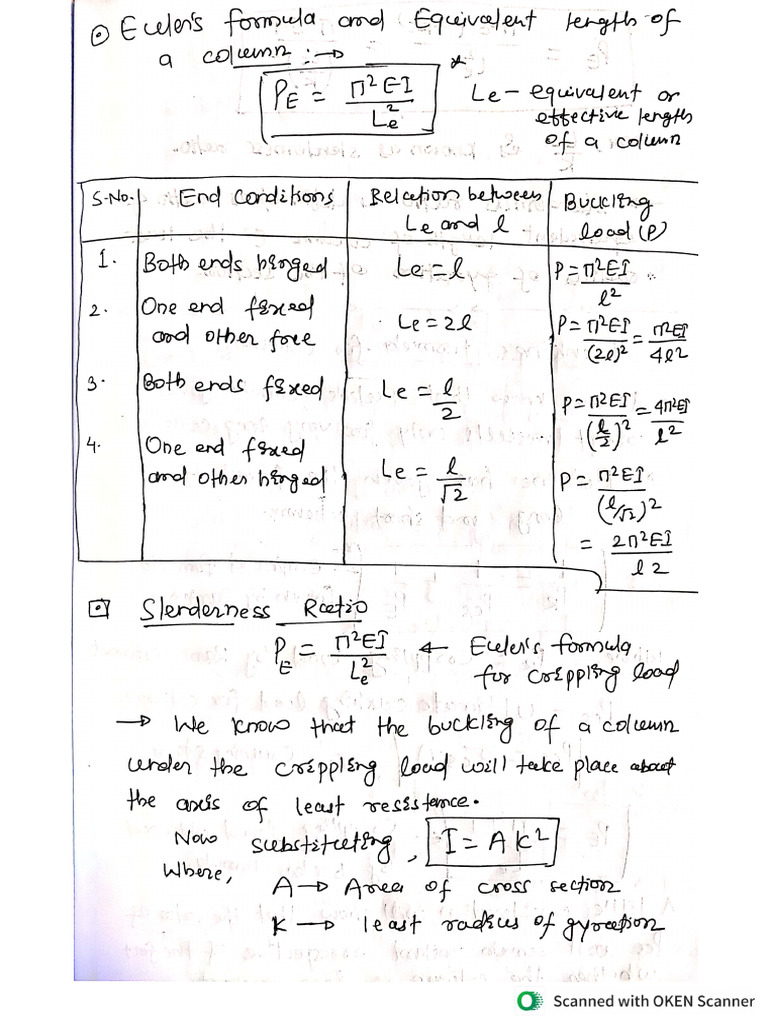 ⊙ Euler's formula and Equivalent length of
a column :→
P_E = π²EI / Le² *
Le - equivalent or
effective length
of a column
S.No. | End Conditions | Relation between Le and l | Buckling load (P)
1. | Both ends hinged | Le = l | P = π²EI / l²
2. | One end fixed and other free | Le = 2l | P = π²EI / (2l)² = π²EI / 4l²
3. | Both ends fixed | Le = l/2 | P = π²EI / (l/2)² = 4π²EI / l²
4. | One end fixed and other hinged | Le = l/√2 | P = π²EI / (l/√2)² = 2π²EI / l2
⊡ Slenderness Ratio
P_E = π²EI / Le² ← Euler's formula
for crippling load
→ We know that the buckling of a column
under the crippling load will take place about
the axis of least resistance.
Now substituting, I = AK²
Where,
A → Area of cross section
K → least radius of gyration
Scanned with OKEN Scanner